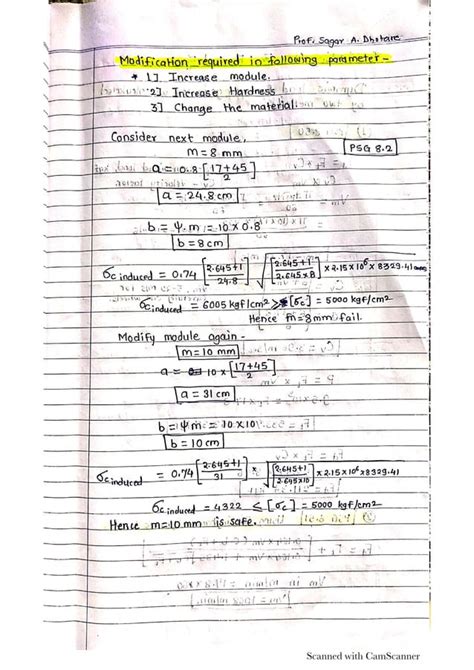 Prof. Sagar A. Dhotare
Modification required in following parameter -
* 1] Increase module.
2] Increase Hardness
3] Change the material.
Consider next module,
m = 8 mm
PSG 8.2
a = 0.8 [17+45 / 2]
a = 24.8 cm
b = Ψ.m = 10 × 0.8
b = 8 cm
σc induced = 0.74 [2.645+1 / 24.8] √[2.645+1 / 2.645×8] × 2.15×10⁶ × 8329.41
σc induced = 6005 kgf/cm² > [σc] = 5000 kgf/cm²
Hence m = 8 mm fail.
Modify module again -
m = 10 mm
a = 10 × [17+45 / 2]
a = 31 cm
b = Ψ m = 10 × 10
b = 10 cm
σc induced = 0.74 [2.645+1 / 31] × √[2.645+1 / 2.645×10] × 2.15×10⁶ × 8329.41
σc induced = 4322 ≤ [σc] = 5000 kgf/cm²
Hence m = 10 mm is safe.
Scanned with CamScanner